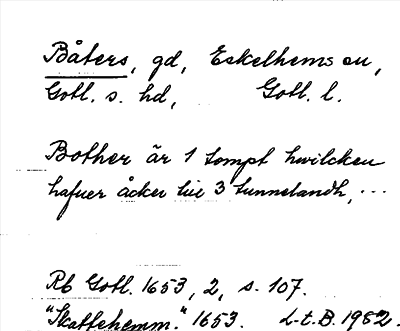 Båters, gd, Eskelhems sn,
Gotl. s. hd, Gotl. l.
Bother är 1 tompt hwilcken
hafuer åcker til 3 tunnelandh, ...
Rb Gotl. 1653, 2, s. 107.
"Skattehemm." 1653. L-t. B. 1982.